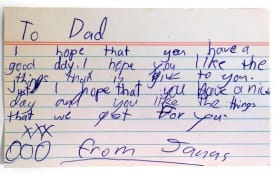 To Dad
I hope that you have a
good day. I hope you like the
things that is give to you.
I hope that you have a nice
day and you like the things
that we got for you.
XXX
OOO from Janas